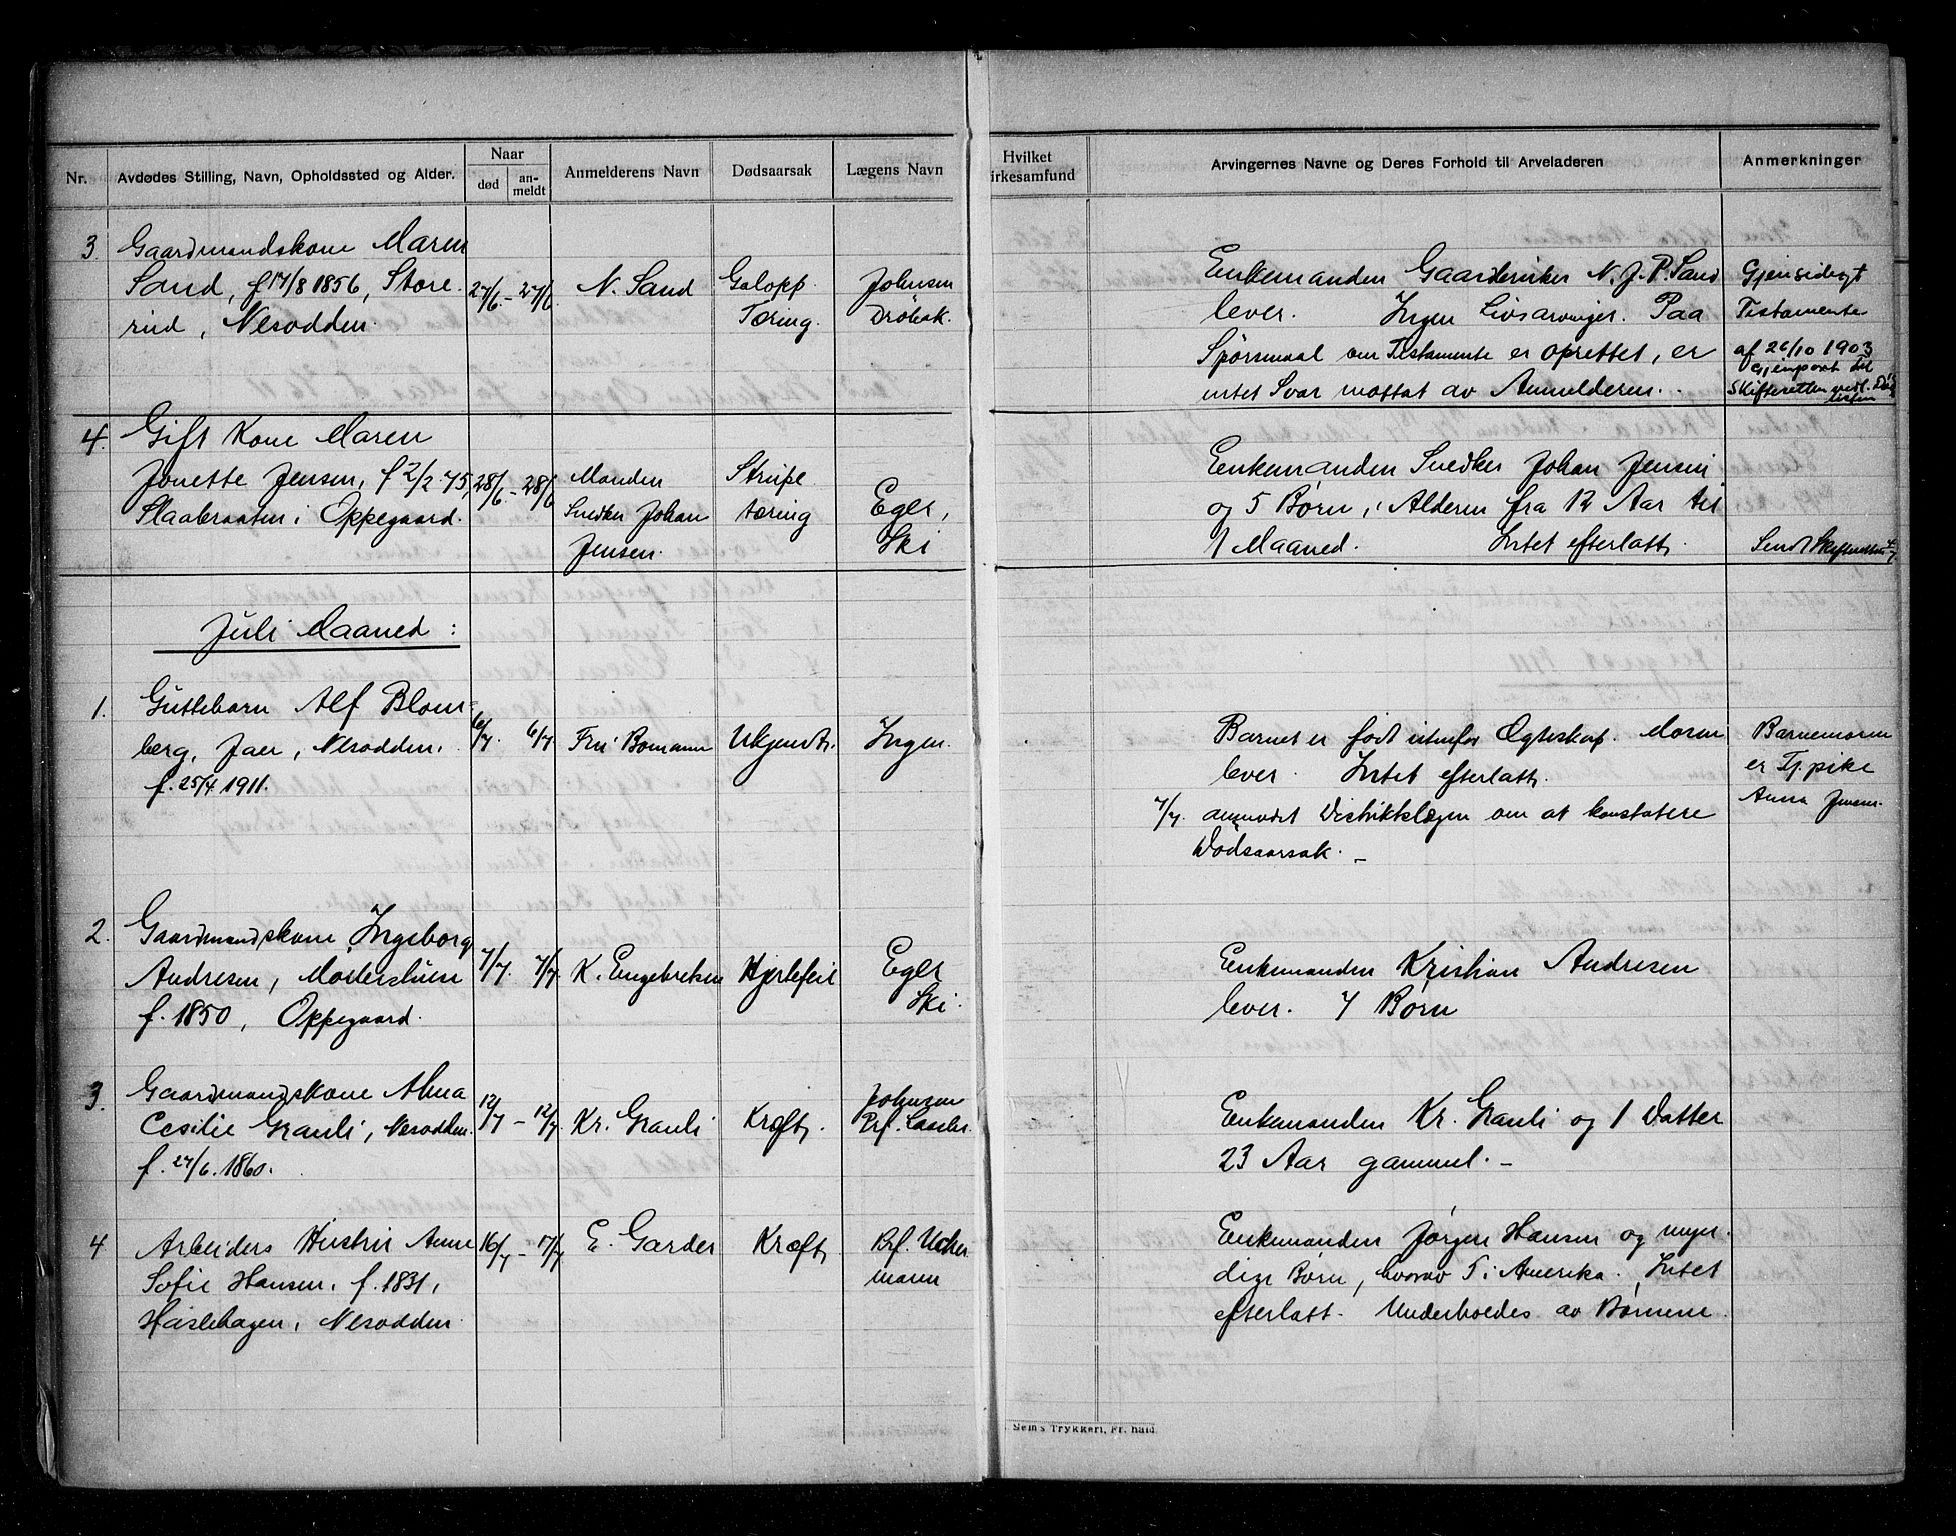 Nr.
Avdødes Stilling, Navn, Opholdssted og Alder.
Naar
død
an-
meldt
Anmelderens Navn
Dødsaarsak
Lægens Navn
Hvilket
irkesamfund
Arvingernes Navne og Deres Forhold til Arveladeren
Anmerkninger
3.
Gaardmandskone Maren
Sand, f 17/8 1856, Store-
rud, Nesodden.
27/6 - 27/6
N. Sand
Galopp.
Tæring.
Johnsen
Drøbak.
Enkemanden Gaardbruker N. J. P. Sand
lever. Ingen Livsarvinger. Paa
Spørsmaal om Testamente er oprettet, er
intet Svar mottat av Anmelderen.
Gjensidigt
Testamente
af 26/10 1903
Gjenpart til
Skifteretten vedl. Døds
listen
4.
Gift Kone Maren
Jonette Jensen, f 2/2 75,
Slaabraaten i Oppegaard.
28/6 - 28/6
Manden
Snedker Johan
Jensen.
Strupe
tæring
Eger,
Ski
Enkemanden Snedker Johan Jensen
og 5 Børn, i Alderen fra 12 Aar til
1 Maaned. Intet efterlatt.
Sendt Skifteretten 4/7
Juli Maaned :
1.
Guttebarn Alf Blom-
berg, Jaer, Nesodden.
f. 25/4 1911.
6/7 6/7
Fru Bomann
Ukjendt.
Ingen.
Barnet er født utenfor Ægteskap. Moren
lever. Intet efterlatt.
7/7. anmodet Distriktslægen om at konstatere
Dødsaarsak. -
Barnemoren
er Tj. pike
Anna Jensen.
2.
Gaardmandskone Ingeborg
Andresen, Mosterstuen
f. 1850, Oppegaard.
7/7. 7/7
K. Engebretsen
Hjertefeil
Eger
Ski.
Enkemanden Kristian Andresen
lever. 7 Børn
3.
Gaardmandskone Alma
Cesilie Granli, Nesodden.
f. 27/6. 1860.
12/7 - 12/7
Kr. Granli
Kræft.
Johnsen
Prf.
Enkemanden Kr. Granli og 1 Datter
23 Aar gammel. -
4
Arbeiders Hustru Anne
Sofie Hansen, f. 1831,
Haslehagen, Nesodden.
16/7 - 17/7
E. Garder
Kræft
Prf. Ucher
mann
Enkemanden Jørgen Hansen og myn-
dige Børn, hvorav 5 i Amerika. Intet
efterlatt. Underholdes av Børnene.
Sem's Trykkeri, Fr. hald.